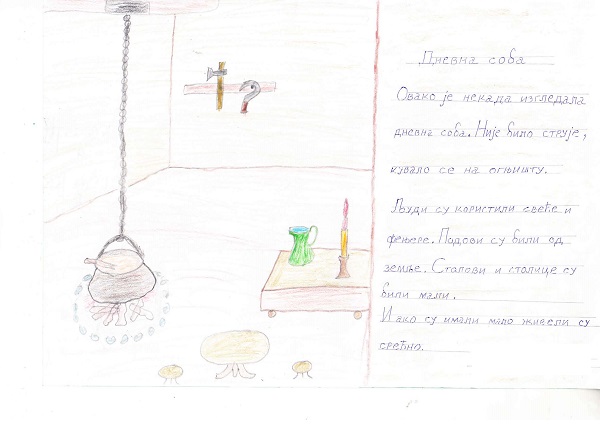 Дневна соба
Овако је некада изгледала
дневна соба. Није било струје,
кувало се на огњишту.
Људи су користили свеће и
фењере. Подови су били од
земље. Столови и столице су
били мали.
И ако су имали мало живели су
срећно.